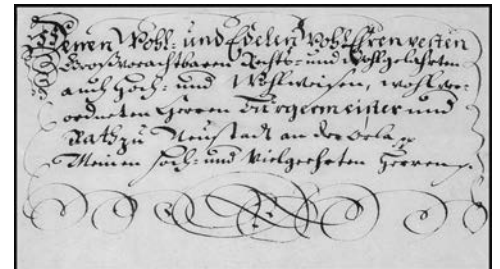 Denen Wohl- und Edelen, Wohl Ehrenvesten
Großvorachtbaren Rechts- und Wohlgelahrten
auch Hoch- und Wohlweisen, wohlver-
ordneten Herren Bürgermeister und
Rath zu Neustadt an der Orla
Meinen Hoch- und Vielgeehrten Herren